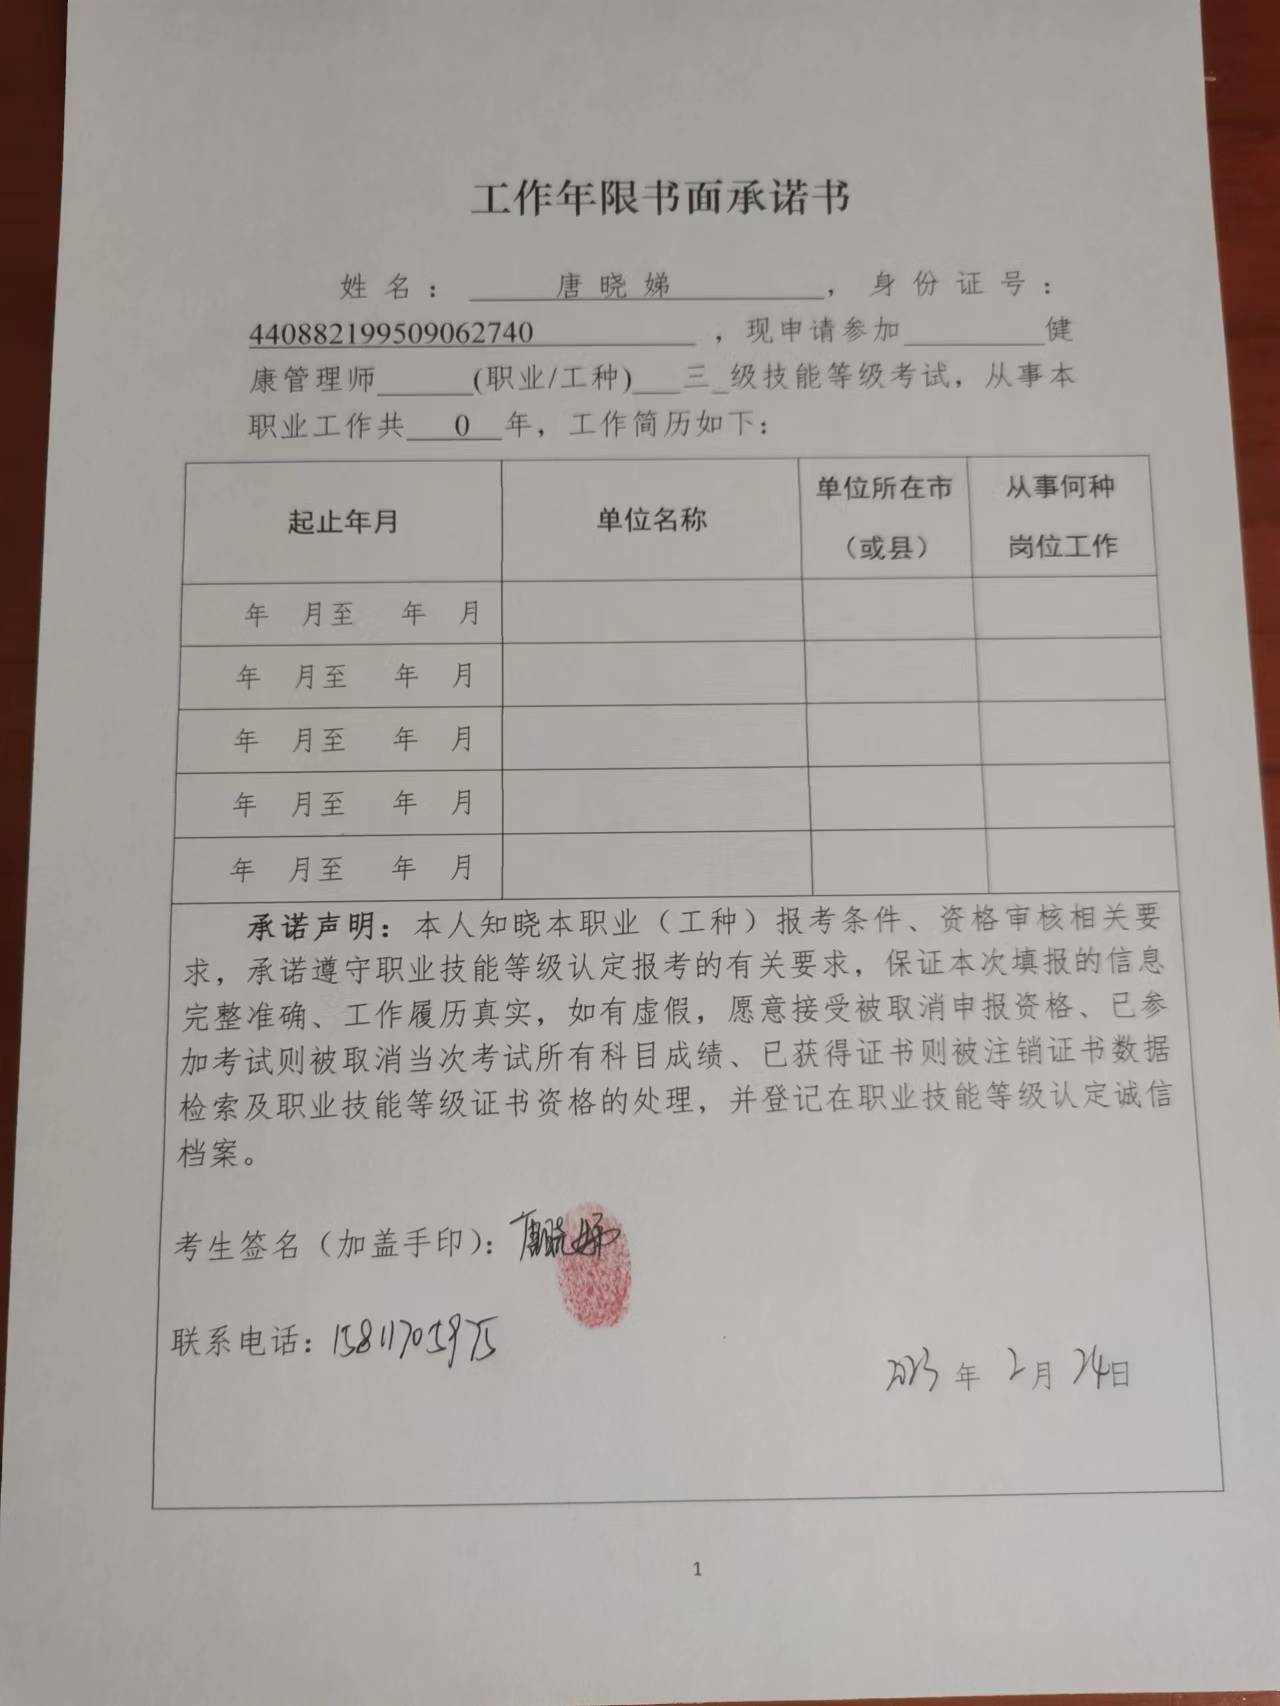 工作年限书面承诺书
姓名：唐晓娣，身份证号：
440882199509062740，现申请参加健
康管理师(职业/工种)三级技能等级考试，从事本
职业工作共 0 年，工作简历如下：
起止年月 单位名称 单位所在市（或县） 从事何种岗位工作
年 月至 年 月
年 月至 年 月
年 月至 年 月
年 月至 年 月
年 月至 年 月
承诺声明：本人知晓本职业（工种）报考条件、资格审核相关要
求，承诺遵守职业技能等级认定报考的有关要求，保证本次填报的信息
完整准确、工作履历真实，如有虚假，愿意接受被取消申报资格、已参
加考试则被取消当次考试所有科目成绩、已获得证书则被注销证书数据
检索及职业技能等级证书资格的处理，并登记在职业技能等级认定诚信
档案。
考生签名（加盖手印）：唐晓娣
联系电话：15811705975
2023 年 2 月 24 日
1